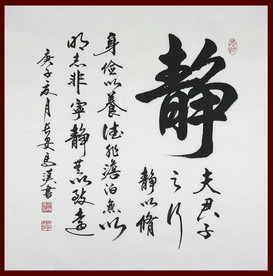 静
夫君子
之行
静以脩
身儉以養德非澹泊無以
明志非寧靜無以致遠
庚子夏月長安書